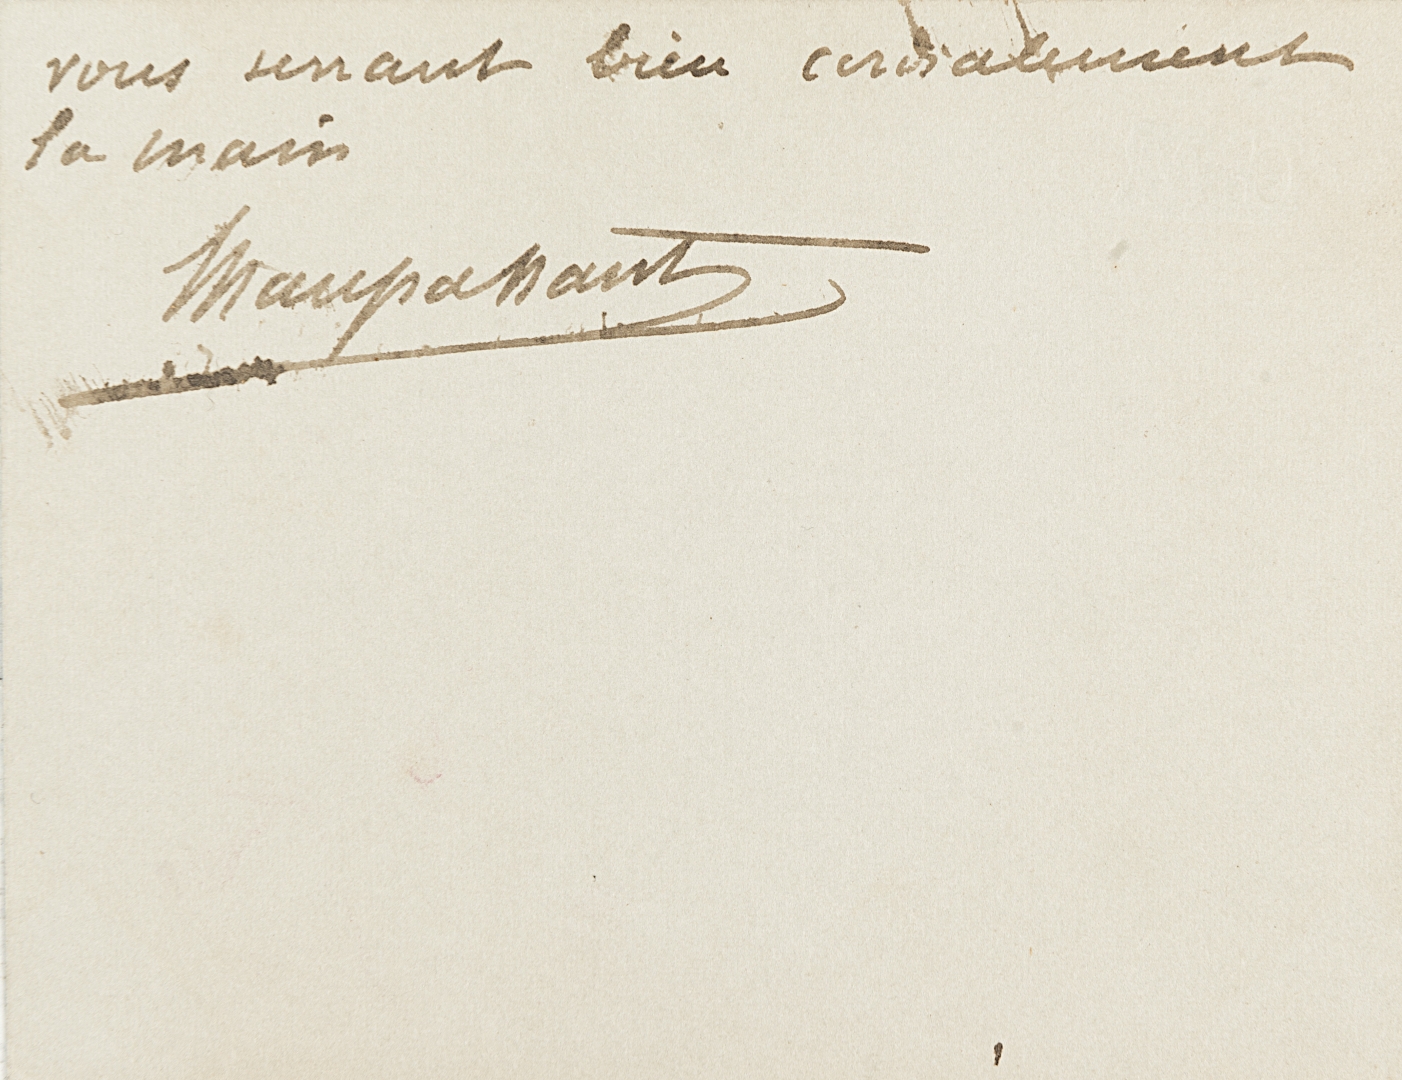 vous serrant bien cordialement
la main
Maupassant